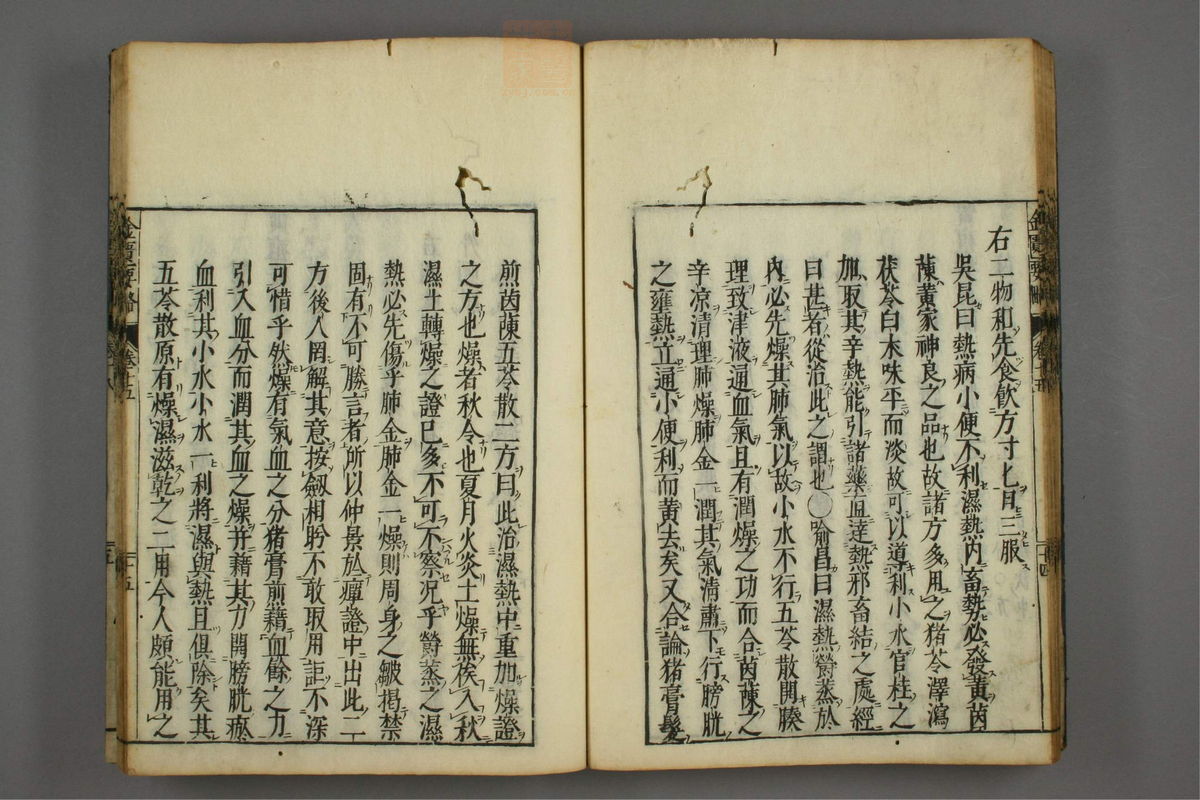 右二物和先食飲方寸匕日三服
吳昆曰熱病小便不利濕熱内畜勢必發黃茵
蔯黃家神良之品也故諸方多用之猪苓澤瀉
茯苓白朮味平而淡故可以導利小水官桂之
加取其辛熱能引諸藥直達熱邪畜結之處經
曰甚者從治此之謂也○喻昌曰濕熱欝蒸於
内必先燥其肺氣以故小水不行五苓散開腠
理致津液通血氣且有潤燥之功而合茵蔯之
辛凉清理肺燥肺金一潤其氣清肅下行膀胱
之壅熱立通小便利而黃去矣又合論猪膏髮
煎茵蔯五苓散二方曰此治濕熱中重加燥證
之方也燥者秋令也夏月火炎土燥無俟入秋
濕土轉燥之證已多不可不察况乎欝蒸之濕
熱必先傷乎肺金肺金一燥則周身之皴揭禁
固有不可勝言者所以仲景於癉證中出此二
方後人罔解其意按劔相盻不敢取用詎不深
可惜乎然燥有氣血之分猪膏煎藉血餘之力
引入血分而潤其血之燥并藉其力開膀胱瘀
血利其小水小水一利將濕與熱且俱除矣其
五苓散原有燥濕滋乾之二用今人頗能用之
金匱要略
卷十五
二十五
金匱要略